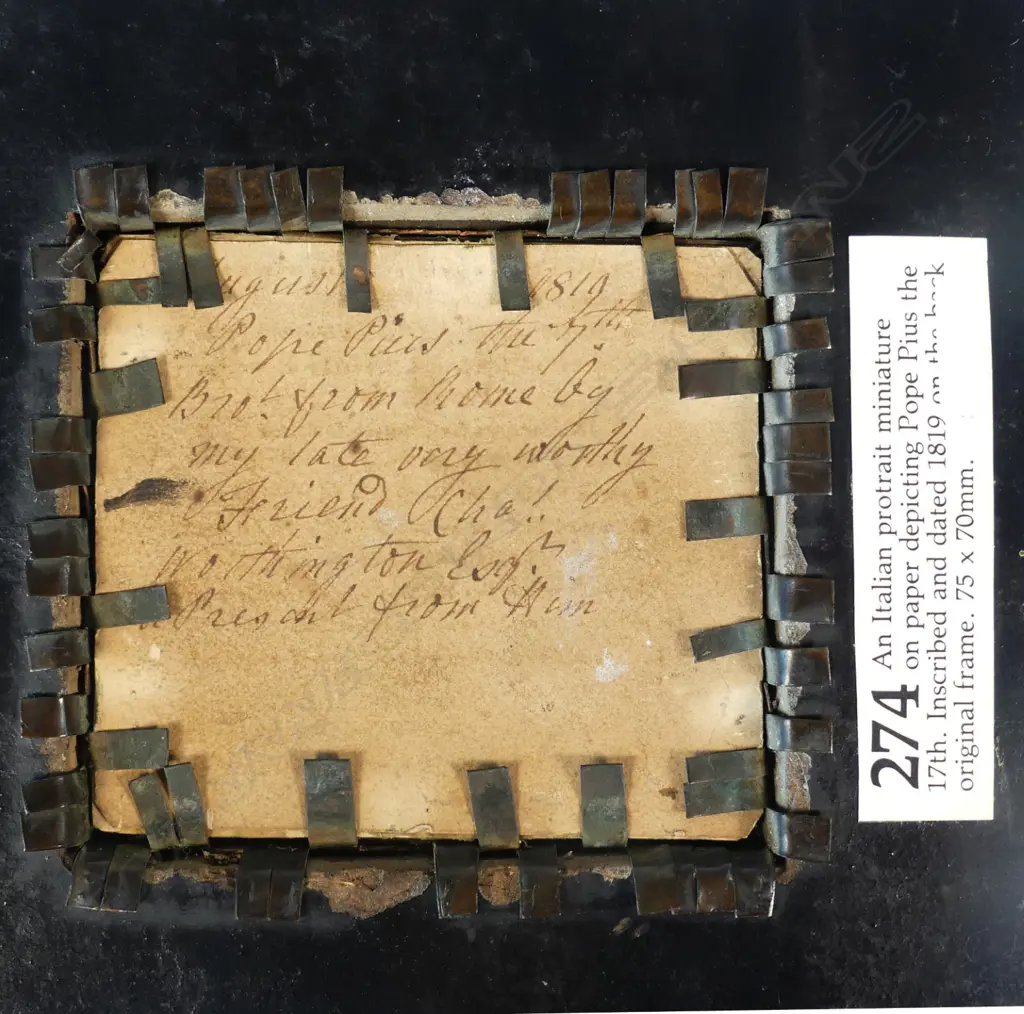 August 1819
Pope Pius the 7th.
Bro.t from Rome by
my late very worthy
Friend Cha.!
Worthington Esq.r
Present from Him
274 An Italian protrait miniature
on paper depicting Pope Pius the
17th. Inscribed and dated 1819 on the back
original frame. 75 x 70mm.